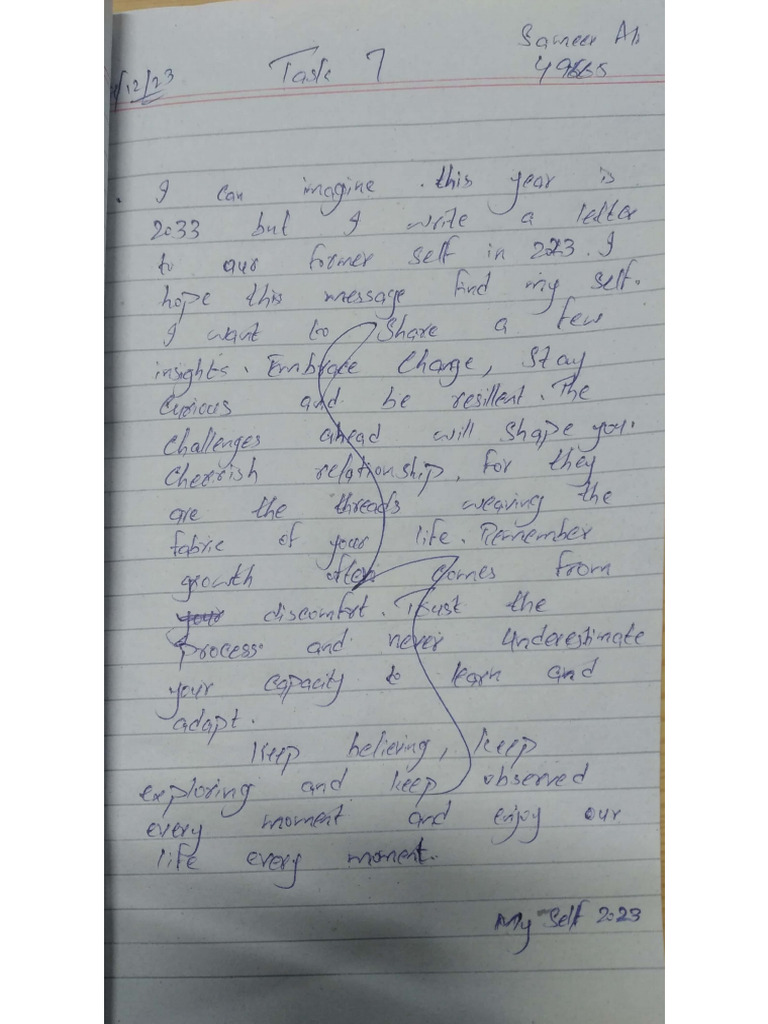 Sameer Ali
/12/23 Task 7 49665
I can imagine . this year is
2033 but I write a letter
to our former self in 2023. I
hope this message find my self.
I want to share a few
insights. Embrace Change, Stay
Curious and be resilient. The
challenges ahead will shape you.
Cherrish relationship, for they
are the threads weaving the
fabric of your life. Remember
growth often comes from
discomfort. Trust the
process and never underestimate
your capacity to learn and
adapt.
Keep believing, keep
exploring and keep observed
every moment and enjoy our
life every moment.
My Self 2023